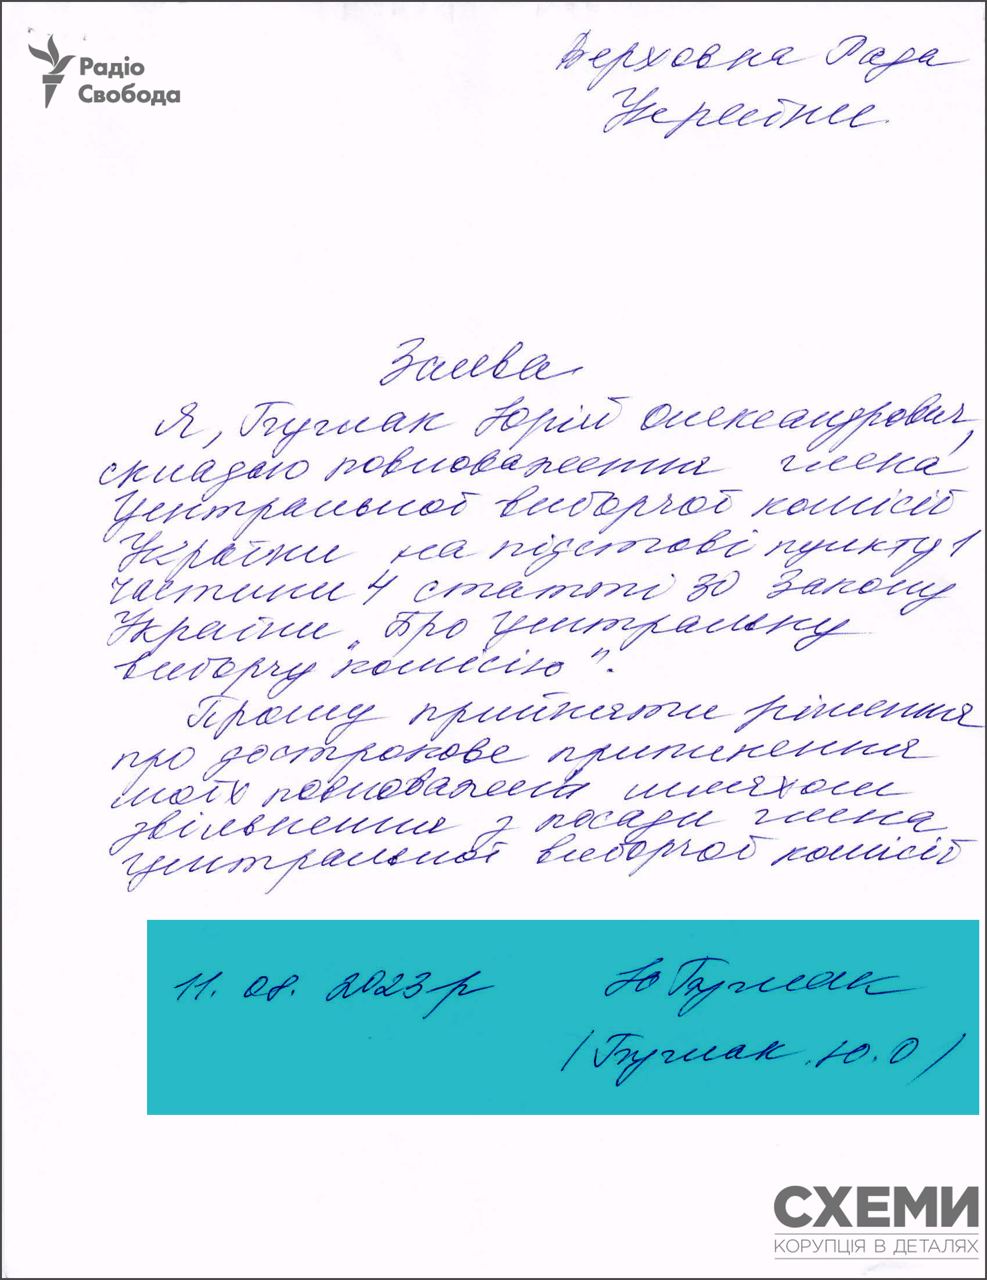 Радіо
Свобода
Верховна Рада
України
Заява
Я, Бузмак Юрій Олександрович,
складаю повноваження члена
Центральної виборчої комісії
України на підставі пункту 1
частини 4 статті 30 Закону
України „Про центральну
виборчу комісію".
Прошу прийняти рішення
про дострокове припинення
моїх повноважень шляхом
звільнення з посади члена
центральної виборчої комісії
11. 08. 2023 р
СХЕМИ
КОРУПЦІЯ В ДЕТАЛЯХ